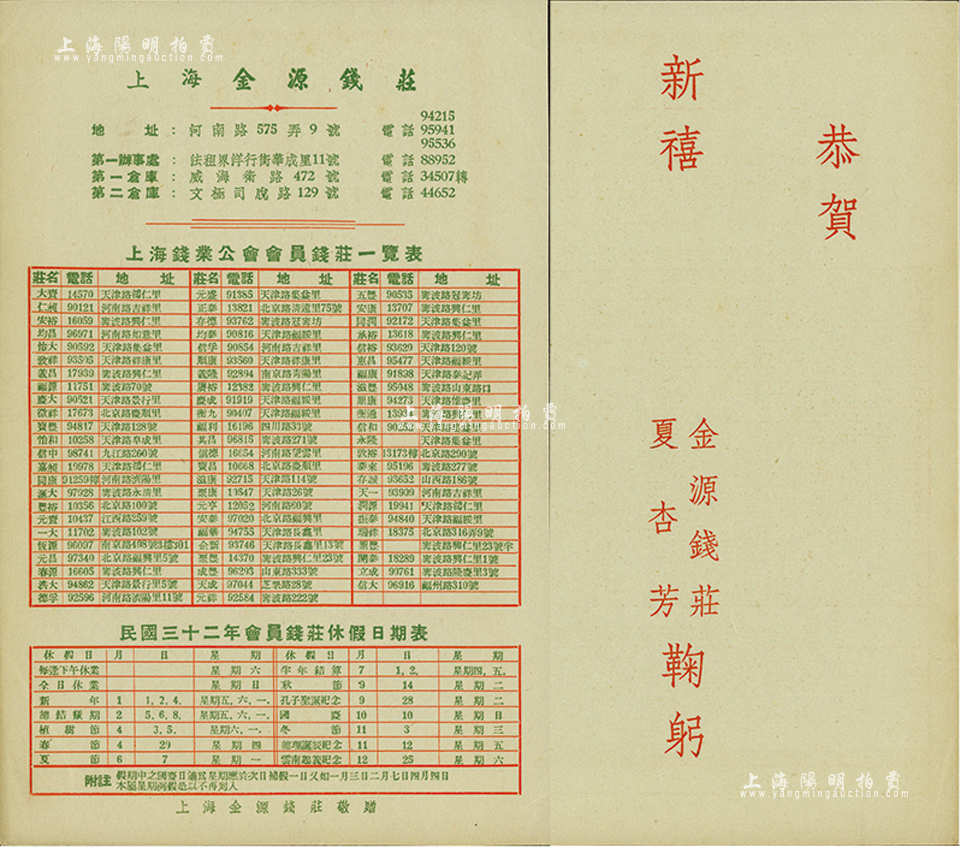 上海陽明拍賣
www.yangmingauction.com
上海金源錢莊
地址：河南路575弄9號 電話 94215 95941 95536
第一辦事處：法租界洋行街華成里11號 電話 88952
第一倉庫：威海衛路472號 電話 34507轉
第二倉庫：文極司脫路129號 電話 44652
上海錢業公會會員錢莊一覽表
莊名 電話 地址 莊名 電話 地址 莊名 電話 地址
大賚 14570 天津路 元盛 91385 天津路集益里 五豐 90535 甯波路
90121 河南路吉祥里 正泰 13821 北京路清遠里75號 安康 13707 甯波路興仁里
安裕 16059 甯波路興仁里 存德 93762 甯波路 同潤 92172 天津路集益里
均昌 96971 河南路如意里 均泰 90816 天津路福綏里 承裕 13618 甯波路興仁里
怡大 90592 天津路集益里 信孚 90854 河南路吉祥里 信裕 93629 天津路120號
致祥 93595 天津路祥康里 順康 93560 天津路祥康里 惠昌 95477 天津路福綏里
義昌 17939 甯波路興仁里 義隆 92894 南京路青陽里 福康 91898 天津路泰記弄
福源 11751 甯波路70號 賡裕 12382 甯波路興仁里 滋豐 95048 甯波路山東路口
慶大 90521 天津路景行里 慶成 91919 天津路福綏里 鼎康 94273 天津路
徵祥 17673 北京路慶順里 衡九 90407 天津路福綏里 衡通
寶豐 94817 天津路128號 福利 16196 四川路33號 信和 天津路集益里
怡和 10258 天津路阜成里 其昌 96815 甯波路271號 永隆 天津路集益里
信中 98741 九江路260號 信德 16654 河南路望雲里 敦裕 13173轉 北京路290號
19978 天津路 寶昌 10668 北京路慶順里 泰來 95196 甯波路277號
同康 91259轉 河南路濟陽里 滋康 92715 天津路114號 存誠 93652 山西路186號
滙大 97928 甯波路永清里 聚康 19547 天津路26號 天一 93909 河南路吉祥里
豐裕 10356 北京路100號 元亨 12052 河南路60號 潤源 19941 天津路
元賚 10437 江西路259號 安泰 97020 北京路福興里 振泰 94840 天津路福綏里
一大 11702 甯波路102號 福華 94755 天津路長鑫里 瑞祥 18375 北京路316弄9號
恆源 96097 南京路408號3樓301 金新 93746 天津路長鑫里13號 甯波路興仁里23號
元昌 97340 北京路福興里5號 聚豐 14370 甯波路興仁里23號 開泰 18289 甯波路興仁里1號
春源 16605 甯波路興仁里 成豐 96293 山東路333號 立成 99761 甯波路隆慶里3號
洪大 94862 天津路景行里5號 天成 97044 芝罘路28號 信大 96916 福州路310號
德孚 92596 河南路濟陽里11號 元祥 92584 甯波路222號
民國三十二年會員錢莊休假日期表
休假日 月 日 星期 休假日 月 日 星期
每逢下午休業 星期六 半年結算 7 1,2, 星期四,五.
全日休業 星期日 秋節 9 14 星期二
新年 1 1,2,4. 星期五,六,一. 孔子聖誕紀念 9 28 星期二
總結賬期 2 5,6,8, 星期五,六,一. 國慶 10 10 星期日
植樹節 4 3,5. 星期六,一. 冬節 11 3 星期三
春節 4 29 星期四 總理誕辰紀念 11 12 星期五
夏節 6 7 星期一 雲南起義紀念 12 25 星期六
附註 假期中之國慶日適爲星期應於次日補假一日又如一月三日二月七日四月四日
本屬星期例假是以不再列入
上海金源錢莊敬贈
恭賀
新禧
金源錢莊
夏杏芳 鞠躬
上海陽明拍賣
www.yangmingauction.com
上海陽明拍賣
www.yangmingauction.com